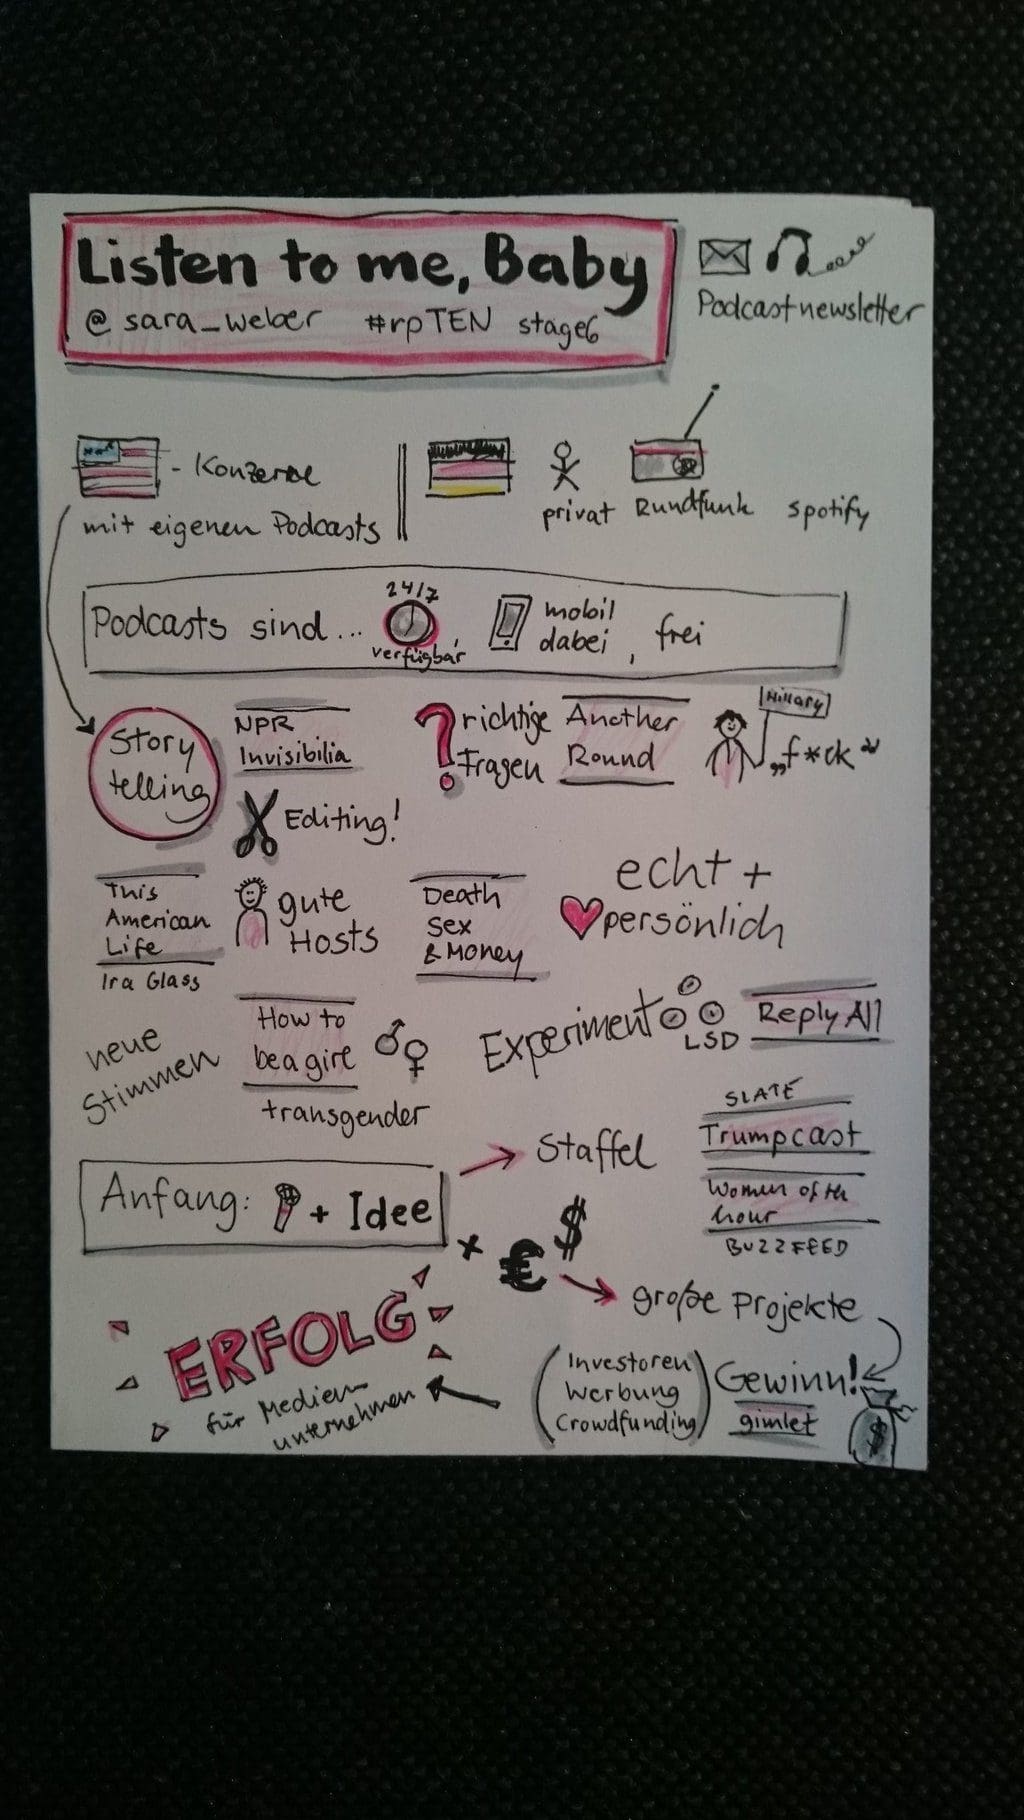 Listen to me, Baby
@sara_weber #rpTEN stage6
Podcastnewsletter
- Konzerne
mit eigenen Podcasts
privat Rundfunk spotify
Podcasts sind...
24/7
verfügbar,
mobil
dabei, frei
Story
telling
NPR
Invisibilia
Editing!
? richtige
Fragen
Another
Round
Hillary
„f*ck“
This
American
Life
Ira Glass
gute
Hosts
Death
Sex
& Money
echt +
persönlich
neue
Stimmen
How to
be a girl
transgender
Experiment
LSD
Reply All
Anfang: + Idee
Staffel
SLATE
Trumpcast
Women of the
hour
BUZZFEED
x € $
große Projekte
Gewinn!
gimlet
$
(Investoren
Werbung
Crowdfunding)
ERFOLG
für Medien-
unternehmen